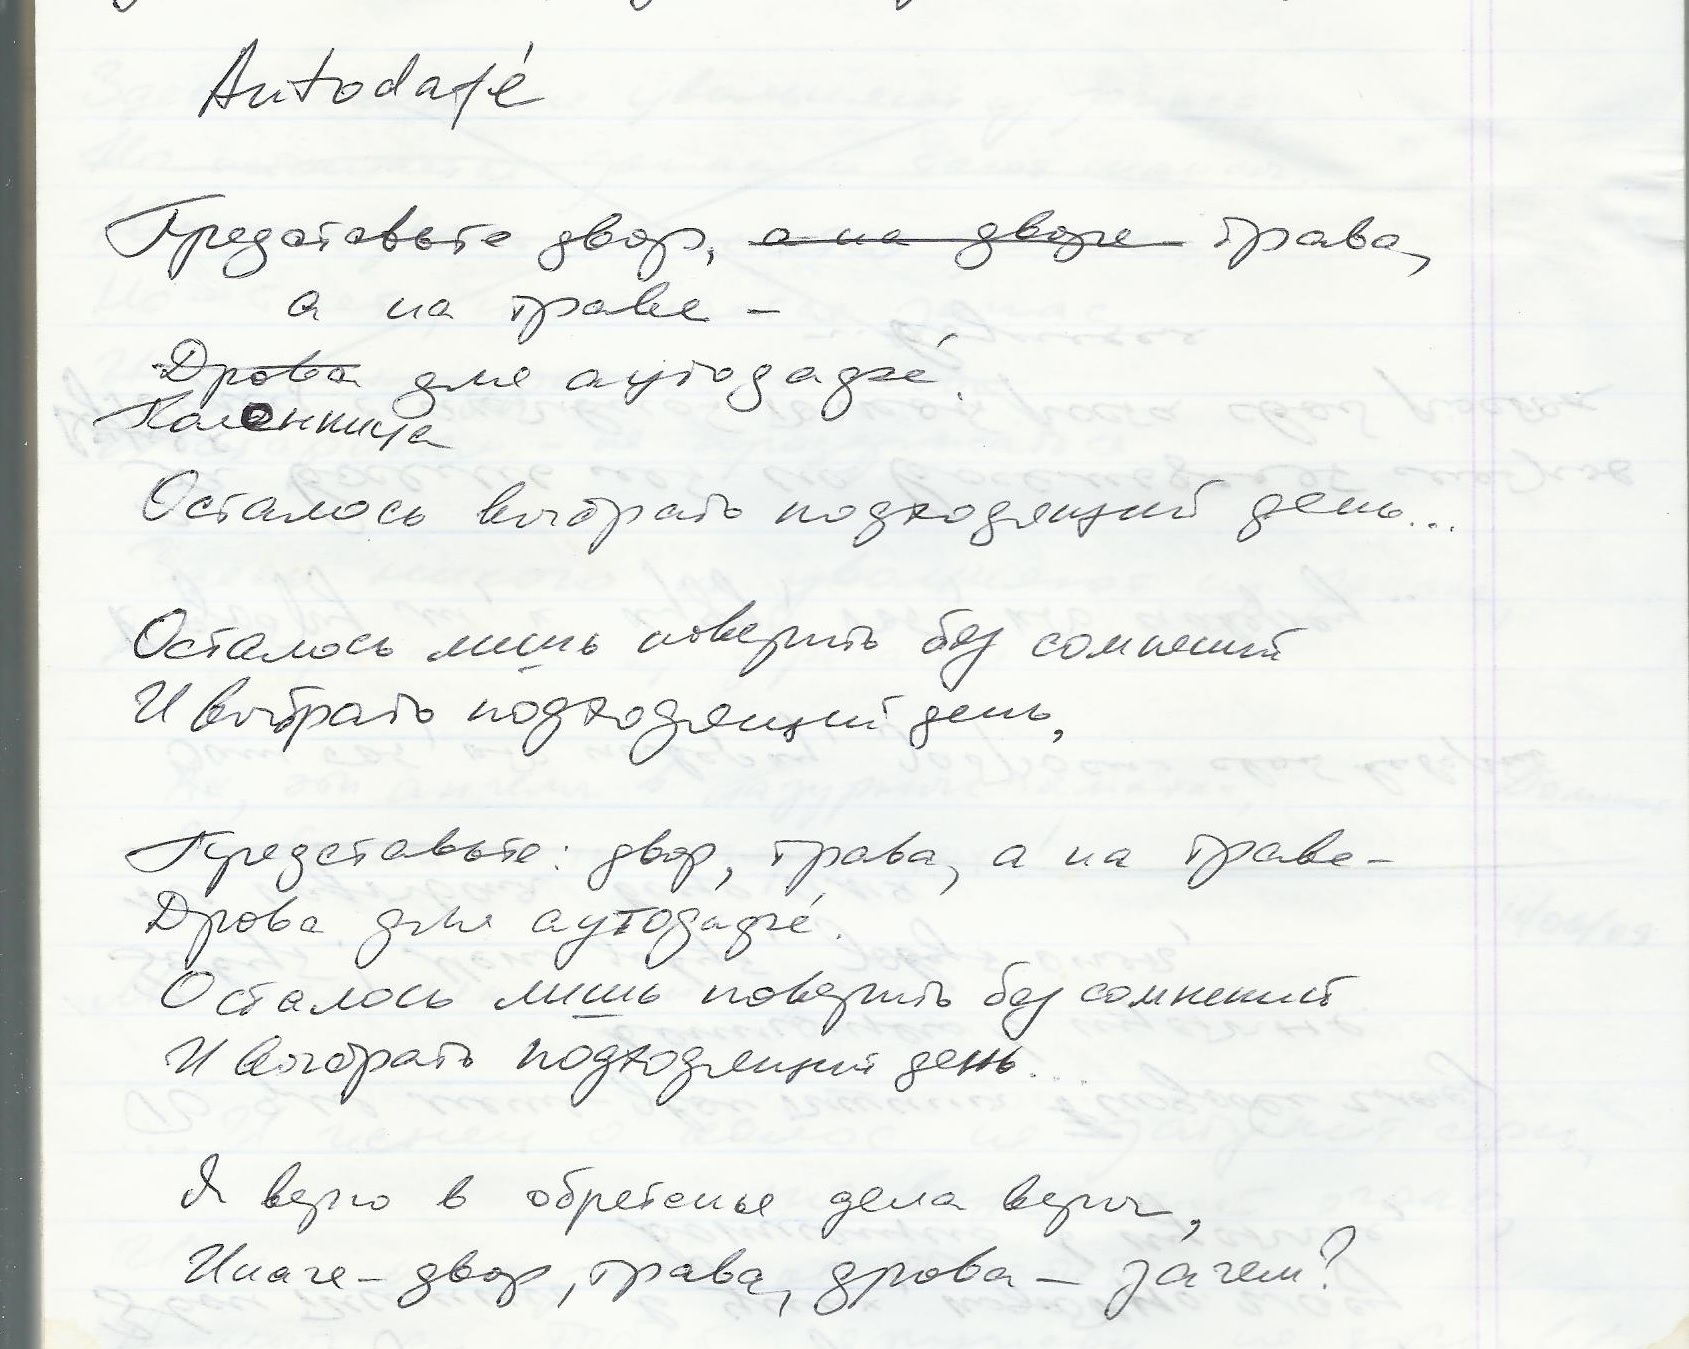 Autodafé
Представьте двор, а на дворе трава,
а на траве –
Дрова для аутодафе́.
Поленница
Осталось выбрать подходящий день...
Осталось лишь поверить без сомнений
И выбрать подходящий день,
Представьте: двор, трава, а на траве –
Дрова для аутодафе́.
Осталось лишь поверить без сомнений
И выбрать подходящий день...
Я верю в обретенье дела веры,
Иначе – двор, трава, дрова – зачем?